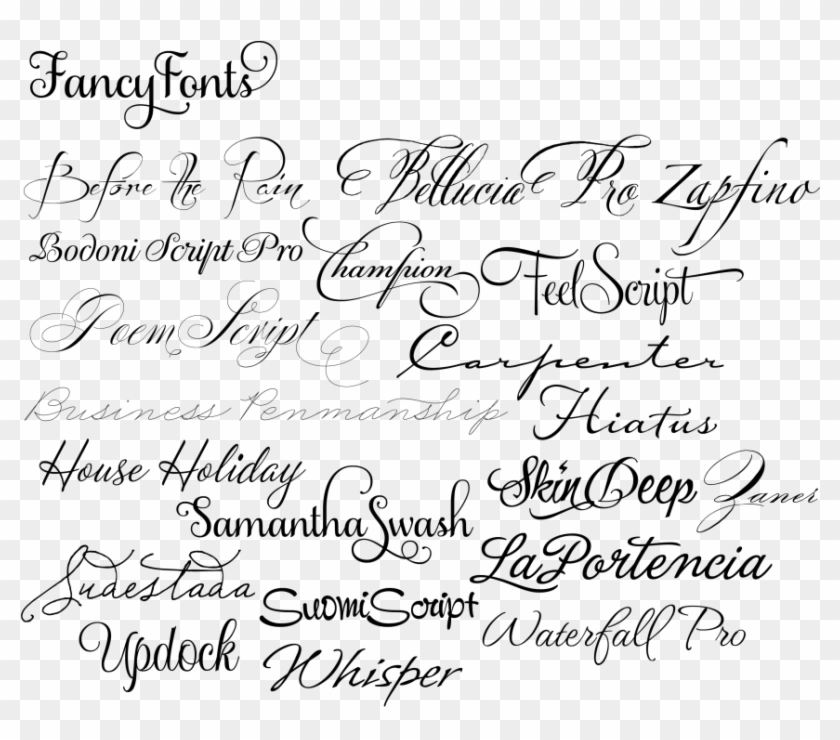 FancyFonts
Before the Rain
Bellucia Pro
Zapfino
Bodoni Script Pro
Champion
FeelScript
PoemScript
Carpenter
Business Penmanship
Hiatus
House Holiday
SkinDeep
Zaner
SamanthaSwash
LaPortencia
Sudestada
SuomiScript
Waterfall Pro
Updock
Whisper